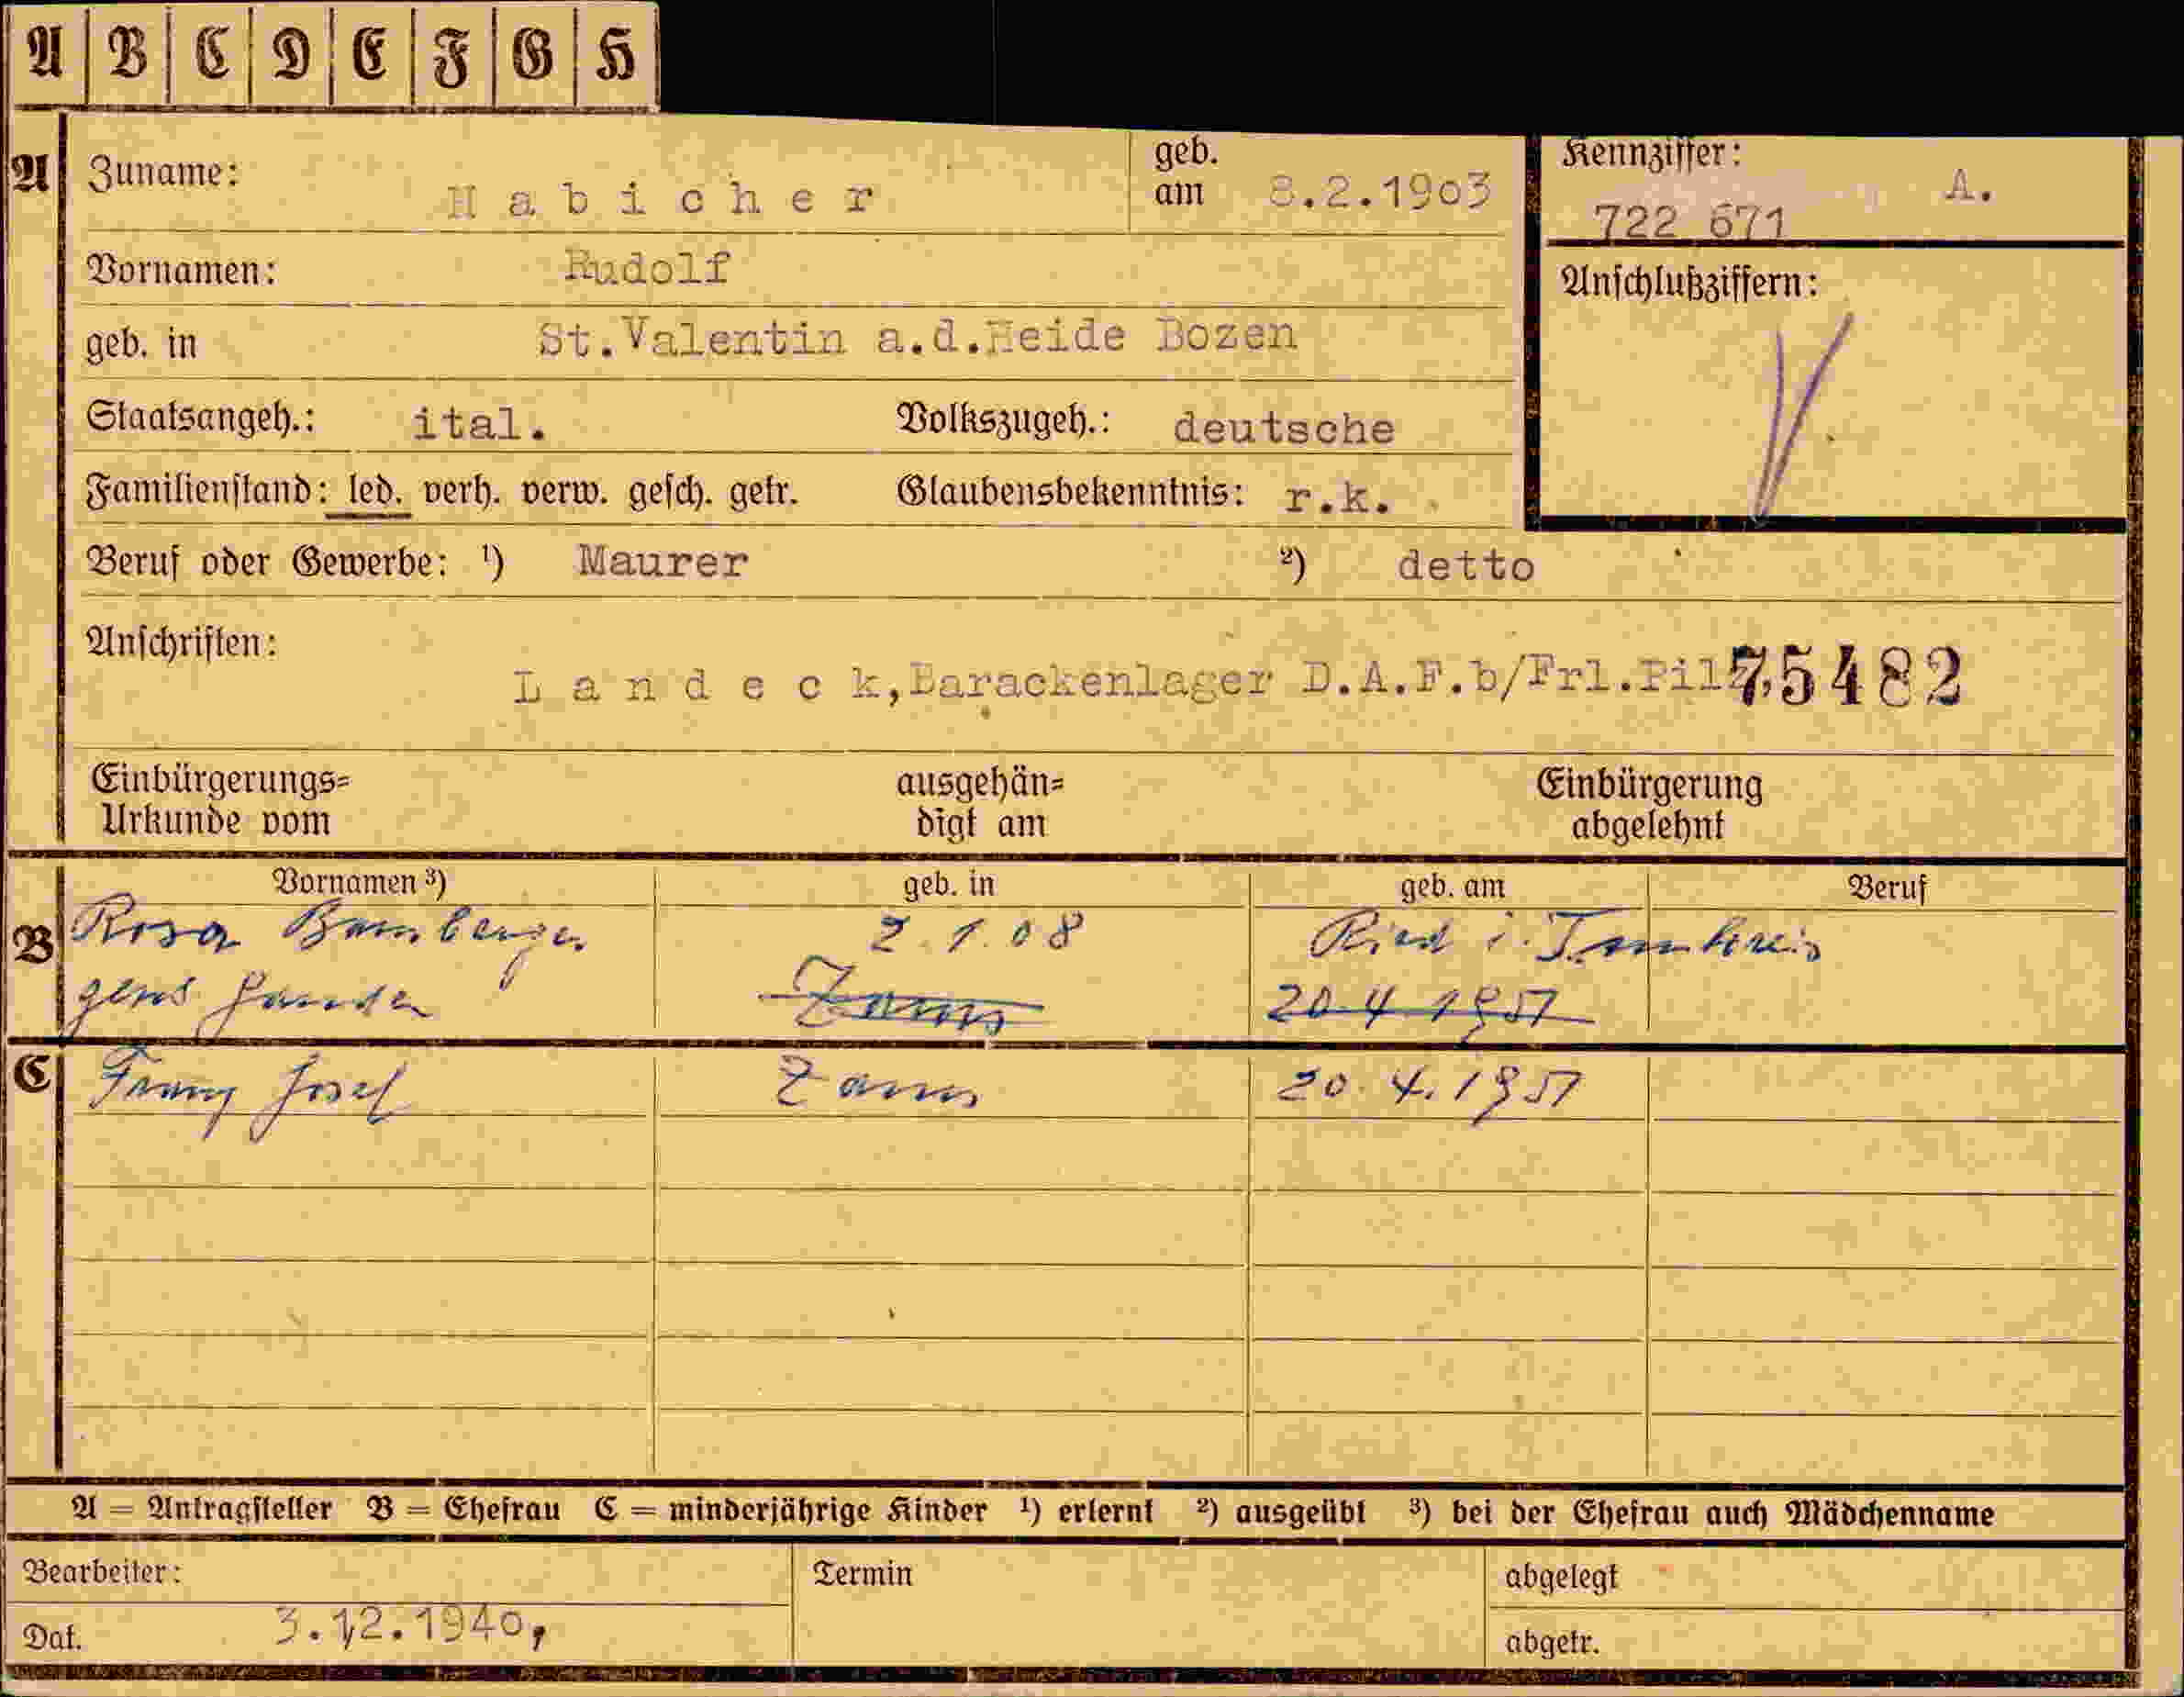 A B C D E F G H
A Zuname: Habicher geb. am 8.2.1903 Kennziffer: 722 671 A.
Vornamen: Rudolf Anschlußziffern:
geb. in St.Valentin a.d.Heide Bozen
Staatsangeh.: ital. Volkszugeh.: deutsche
Familienstand: led. verh. verw. gesch. getr. Glaubensbekenntnis: r.k.
Beruf oder Gewerbe: ¹) Maurer ²) detto
Anschriften:
Landeck,Barackenlager D.A.F.b/Frl. 75482
Einbürgerungs= ausgehän= Einbürgerung
Urkunde vom digt am abgelehnt
Vornamen ³) geb. in geb. am Beruf
B Rosa 2.1.08 Ried i.
Zams 20 4 1951
C Franz Josef Zams 20.4.1951
A = Antragsteller B = Ehefrau C = minderjährige Kinder ¹) erlernt ²) ausgeübt ³) bei der Ehefrau auch Mädchenname
Bearbeiter: Termin abgelegt
Dat. 3.12.1940, abgetr.